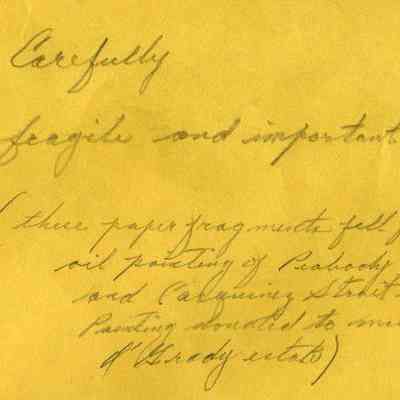 Carefully
fragile and important
(these paper fragments fell f
oil painting of Peabody
and Carquinez Strait-
Painting donated to mu
O'Grady estate)